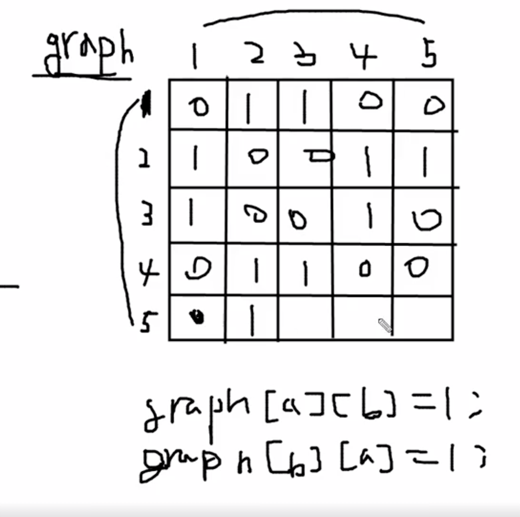 graph 1 2 3 4 5
1 0 1 1 0 0
2 1 0 0 1 1
3 1 0 0 1 0
4 0 1 1 0 0
5 0 1
graph[a][b]=1;
graph[b][a]=1;